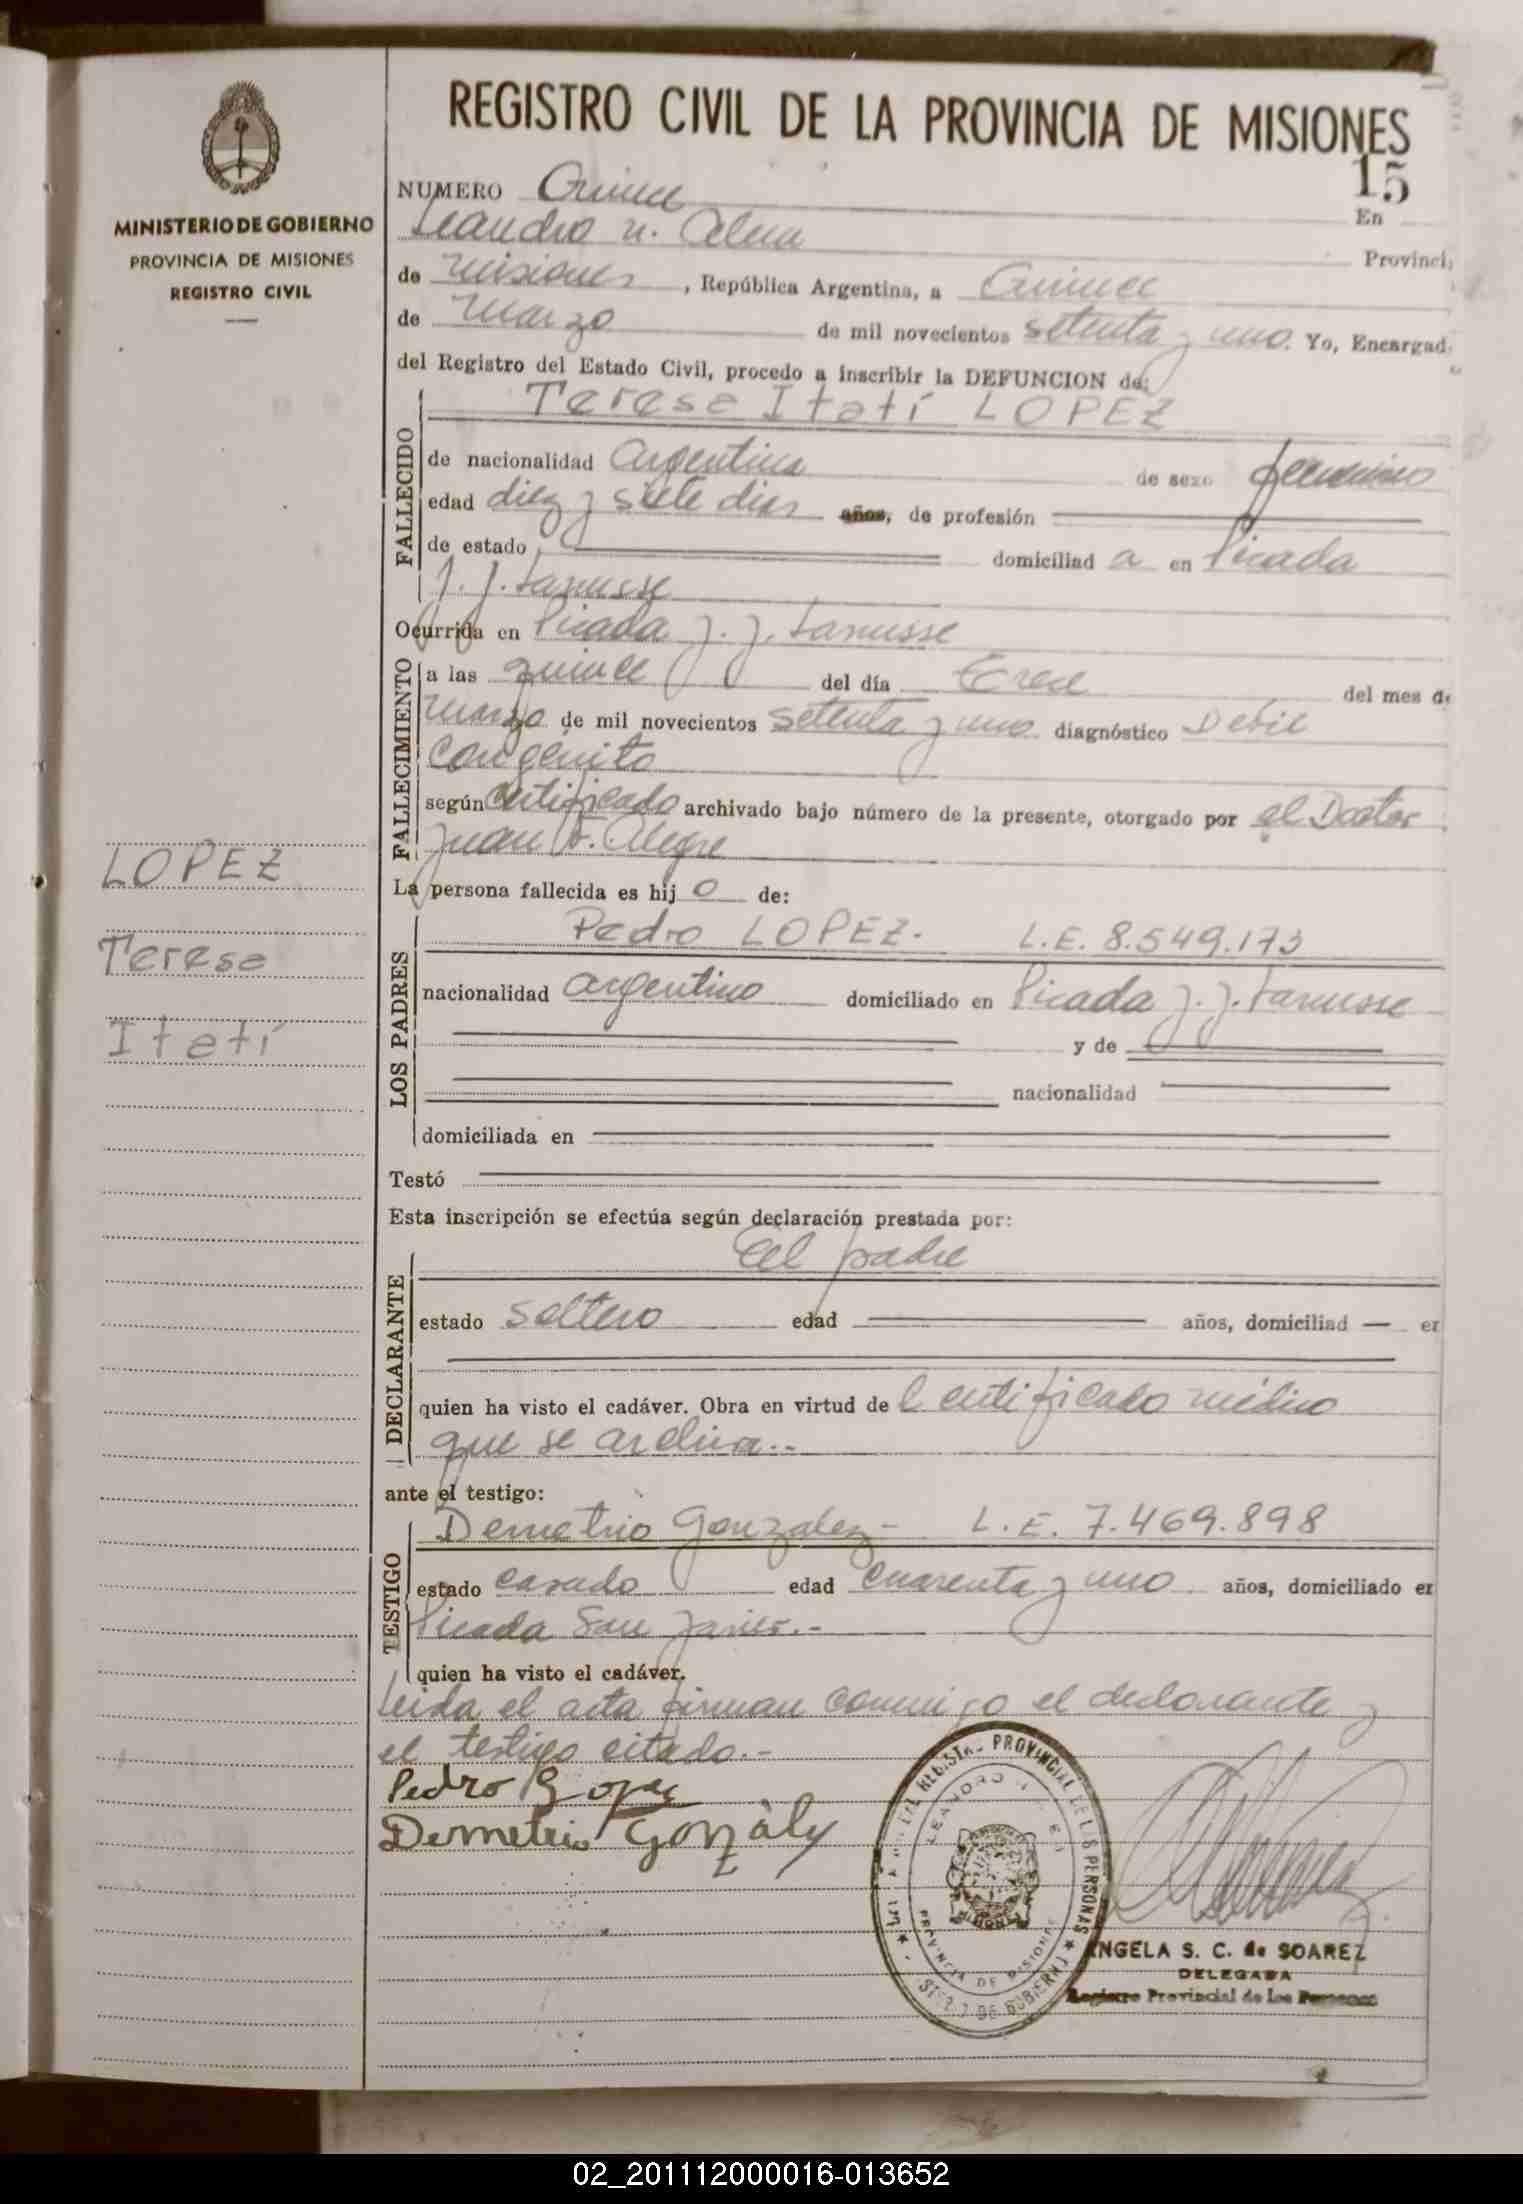 REGISTRO CIVIL DE LA PROVINCIA DE MISIONES
15
MINISTERIO DE GOBIERNO
PROVINCIA DE MISIONES
REGISTRO CIVIL
NUMERO Quince En
Leandro N. Alem Provinci
de Misiones, República Argentina, a Quince
de Marzo de mil novecientos setenta y uno. Yo, Encargad
del Registro del Estado Civil, procedo a inscribir la DEFUNCION de:
Terese Itatí LOPEZ
FALLECIDO
de nacionalidad Argentina de sexo femenino
edad diez y siete dias años, de profesión
de estado domiciliad a en Picada
J. J. Lanusse
Ocurrida en Picada J. J. Lanusse
FALLECIMIENTO
a las quince del día Trece del mes de
Marzo de mil novecientos setenta y uno diagnóstico Debil
congénito
según certificado archivado bajo número de la presente, otorgado por el Doctor
Juan A. Alegre
La persona fallecida es hij o de:
LOPEZ
Terese
Itetí
LOS PADRES
Pedro LOPEZ. L.E. 8.549.173
nacionalidad argentino domiciliado en Picada J. J. Lanusse
y de
nacionalidad
domiciliada en
Testó
Esta inscripción se efectúa según declaración prestada por:
DECLARANTE
El padre
estado soltero edad años, domiciliad — en
quien ha visto el cadáver. Obra en virtud de l certificado médico
que se archiva.-
ante el testigo:
TESTIGO
Demetrio Gonzalez - L.E. 7.469.898
estado casado edad cuarenta y uno años, domiciliado en
Picada San Javier.-
quien ha visto el cadáver.
Leida el acta firman conmigo el declarante y
el testigo citado.-
Pedro Lopez
Demetrio Gonzàlz
REGISTRO PROVINCIAL DE LAS PERSONAS
LEANDRO N. ALEM
PROVINCIA DE MISIONES
ANGELA S. C. de SOAREZ
DELEGADA
Registro Provincial de las Personas
02_201112000016-013652